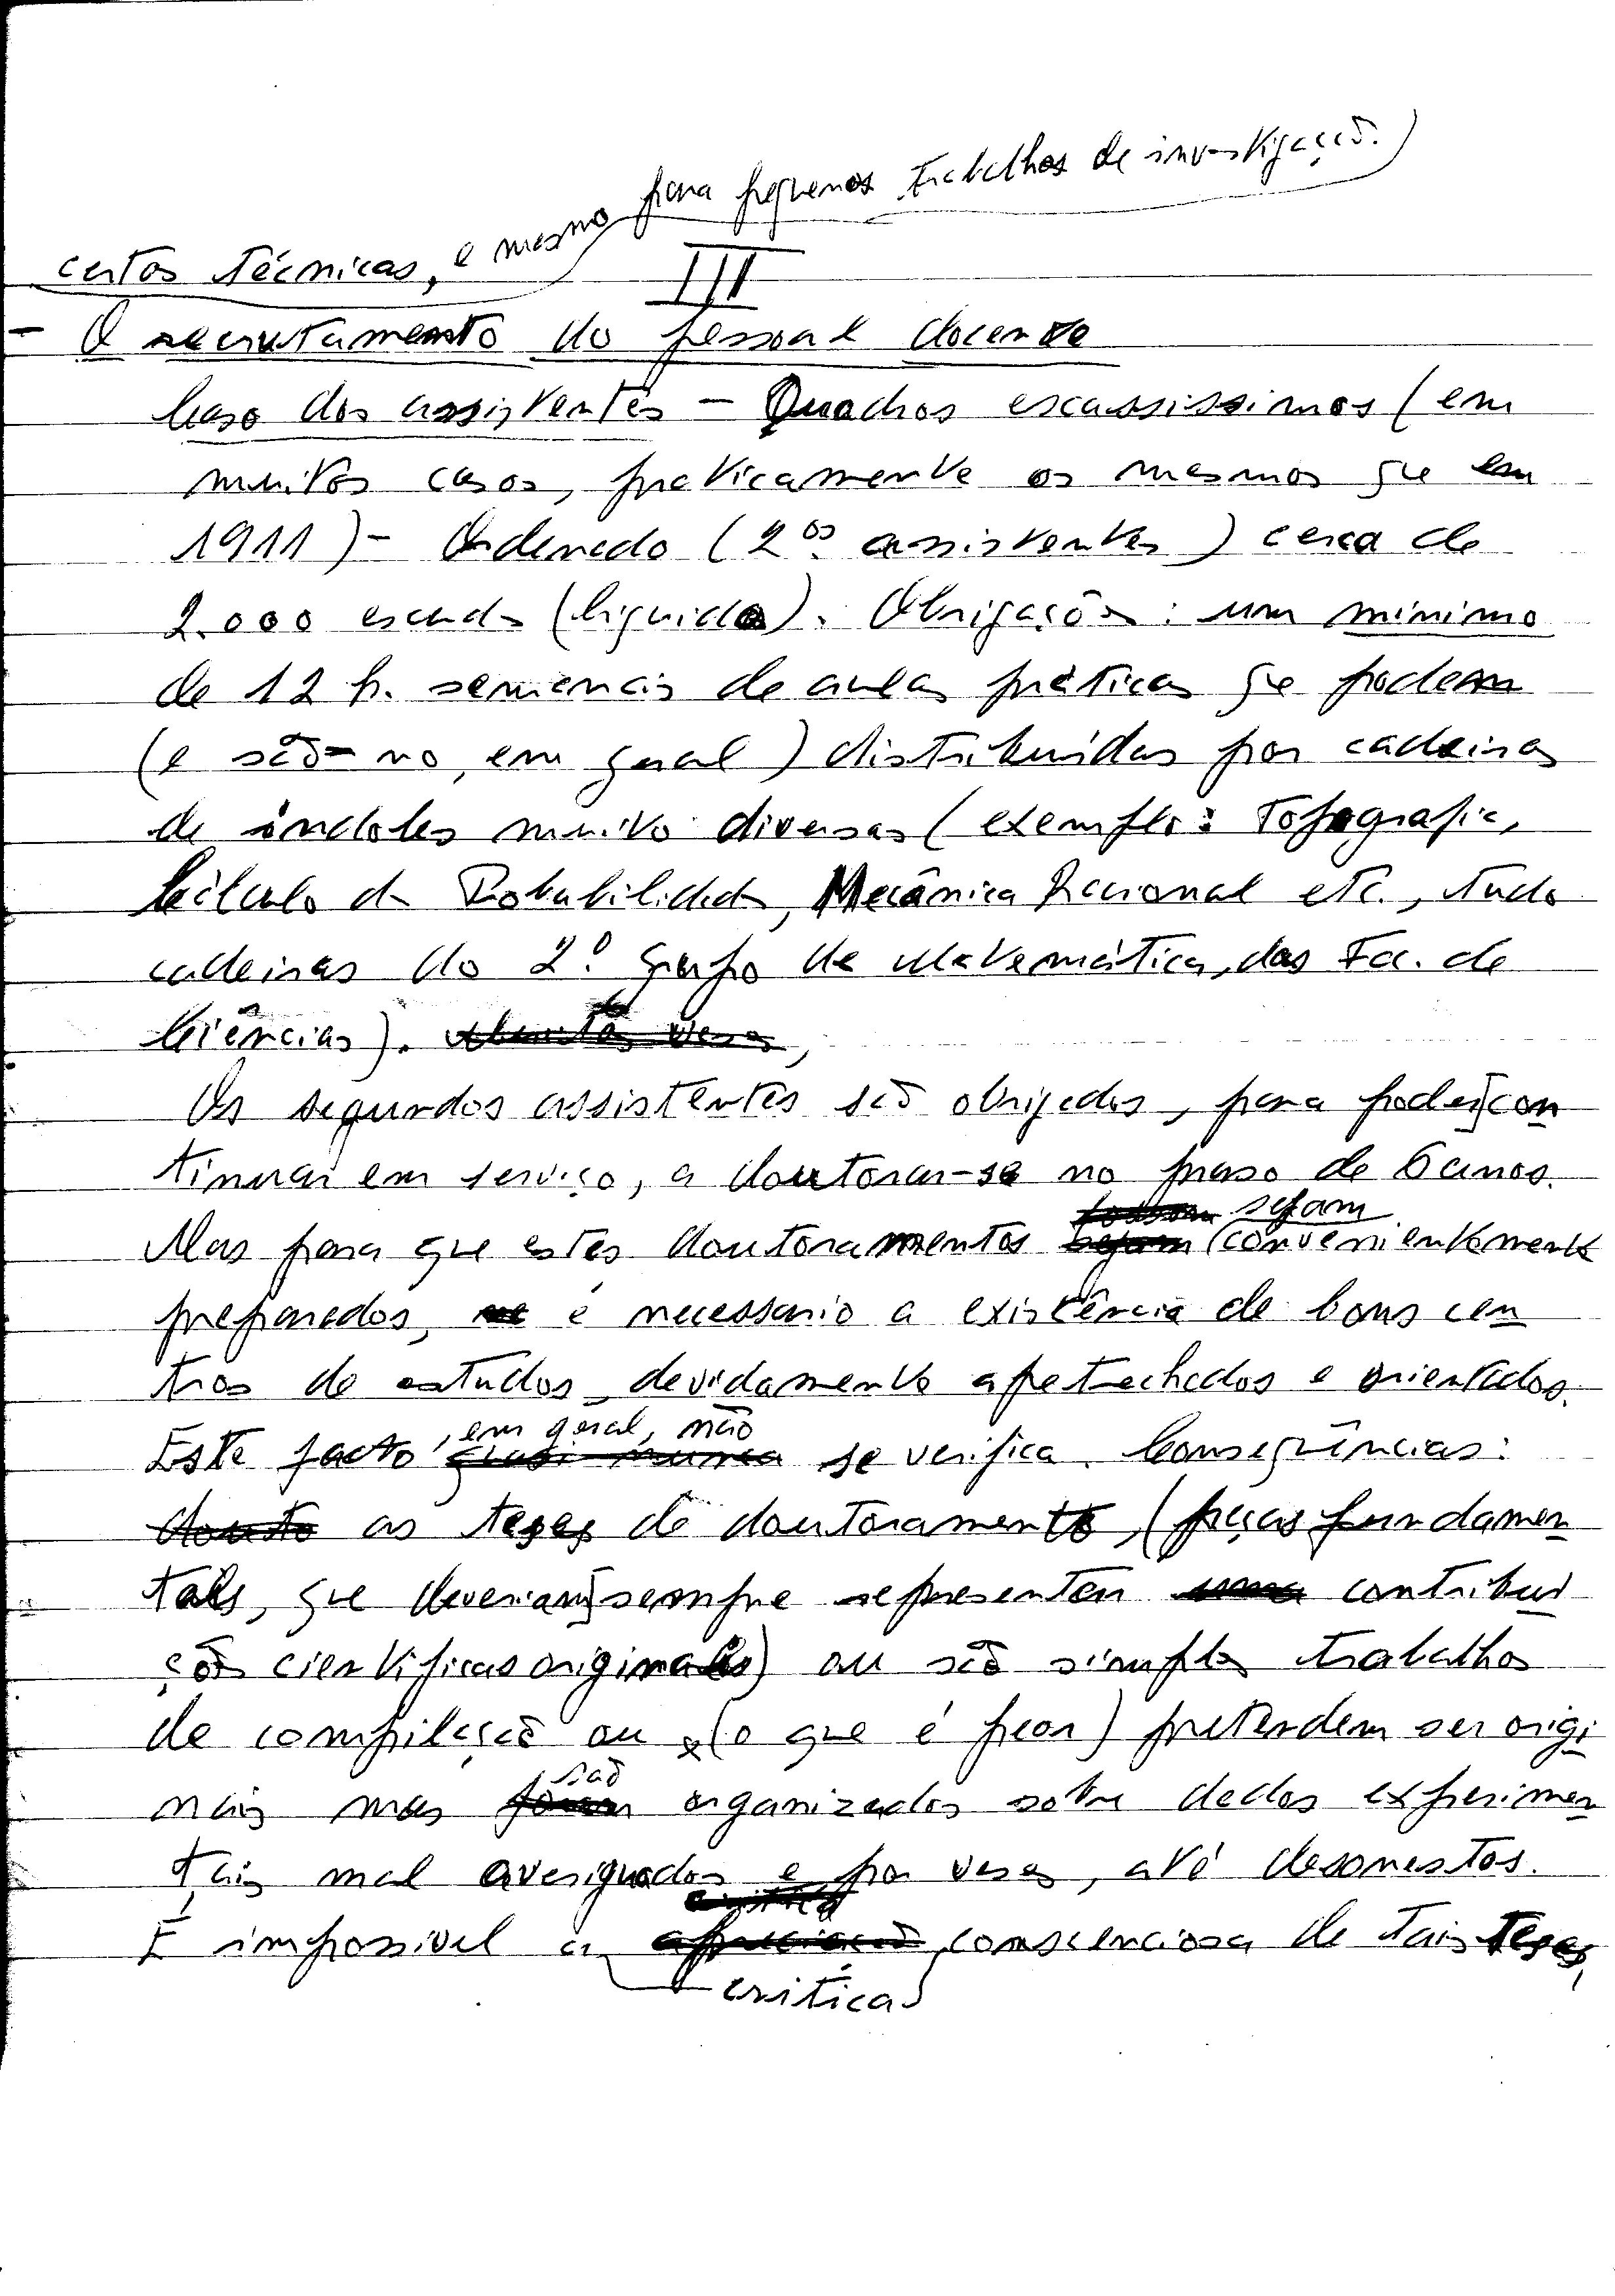 certas técnicas, e mesmo para pequenos trabalhos de investigação.)
III
- O recrutamento do pessoal docente
Caso dos assistentes - Quadros escassissimos (em
muitos casos, praticamente os mesmos que em
1911) - Ordenado (2ºs assistentes) cerca de
2.000 escudos (liquidos). Obrigações: um minimo
de 12 h. semanais de aulas práticas que podem
(e são-no, em geral) distribuidas por cadeiras
de índoles muito diversas (exemplo: Topografia,
Cálculo das Probabilidades, Mecânica Racional etc., tudo
cadeiras do 2.º grupo de Matemática, das Fac. de
Ciências). Muitas vezes,
Os segundos assistentes são obrigados, para poder con
tinuar em serviço, a doutorar-se no praso de 6 anos.
sejam
Mas para que estes doutoramentos sejam convenientemente
preparados, é necessario a existência de bons cen
tros de estudos devidamente apetrechados e orientados.
, em geral, não
Este facto quasi nunca se verifica. Consequências:
douto as teses de doutoramento, (peças fundamen
tais, que deveriam sempre representar uma contribui
ções cientificas originais) ou são simples trabalhos
de compilação ou (o que é peor) pretendem ser origi
são
nais mas foram organizados sobre dados experimen
tais mal averiguados e, por vezes, até desonestos.
critica
É impossivel a apreciação conscienciosa de tais teses,
critica